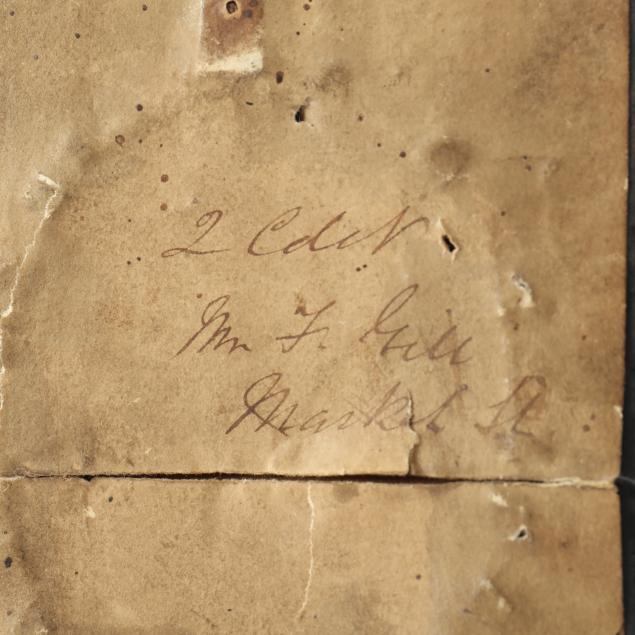 2
Mr F. Gill
Market St